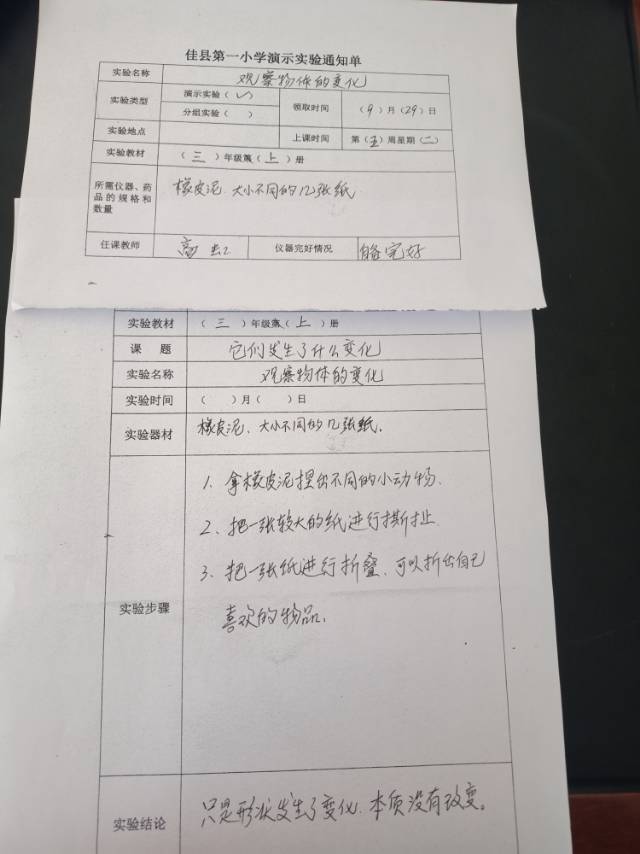 佳县第一小学演示实验通知单
实验名称 观察物体的变化
实验类型 演示实验(✓) 领取时间 (9)月(29)日
分组实验( )
实验地点 上课时间 第(五)周星期(二)
实验教材 (三)年级第(上)册
所需仪器、药品的规格和数量 橡皮泥、大小不同的几张纸
任课教师 高 仪器完好情况 完好
实验教材 (三)年级第(上)册
课 题 它们发生了什么变化
实验名称 观察物体的变化
实验时间 ( )月( )日
实验器材 橡皮泥、大小不同的几张纸.
实验步骤
1、拿橡皮泥捏出不同的小动物.
2、把一张较大的纸进行撕扯
3、把一张纸进行折叠,可以折出自己
喜欢的物品.
实验结论 只是形状发生了变化.本质没有改变。